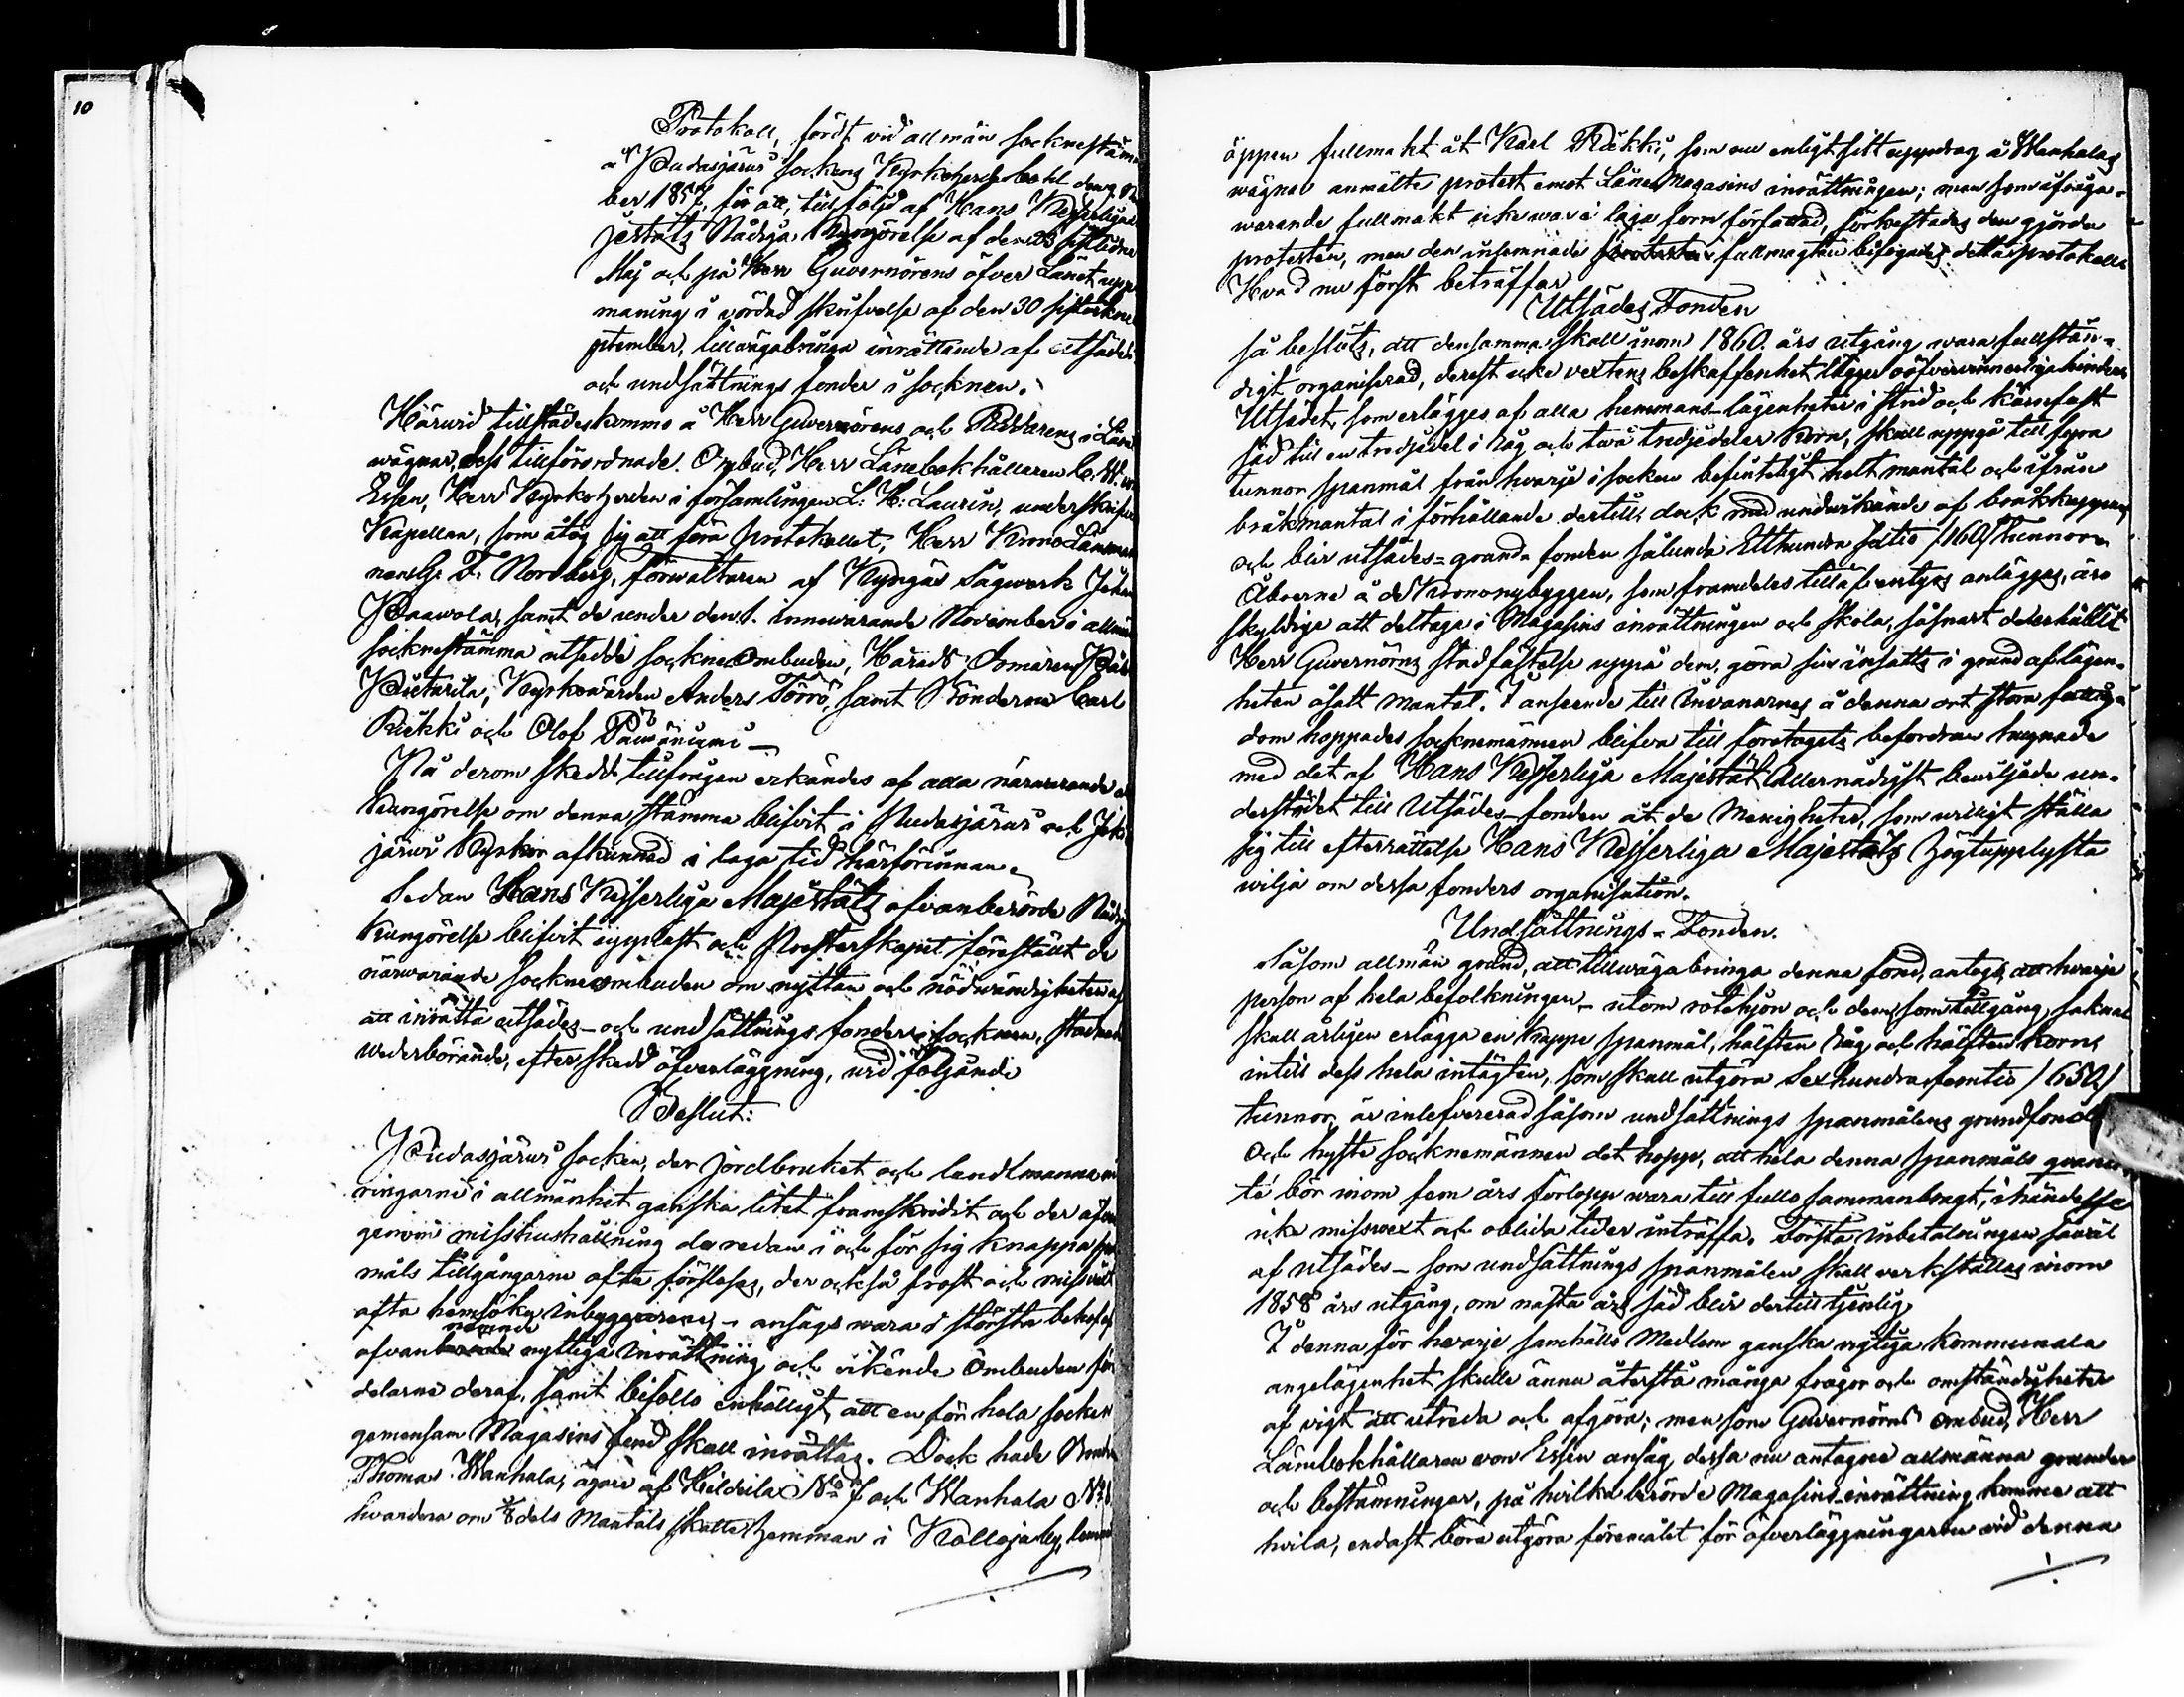 10
Protokoll, fördt vid allmän sockneständ
å Pudasjärvi sockens Kyrkoherdebohl den 9 No
ber 1857, för att, till följd af Hans Kejserliga
jestäts Nådiga Kungörelse af den 28 sistlidne
Maj och på Herr Guvernörens öfver Länet upp
maning i vördad skrifvelse af den 30 sistvikne
ptember, tillvägabringa inrättande af utsädes
och undsättnings fonder i socknen.
Härvid tillstädeskommo å Herr Guvernörens och Riddarens i Län
vägnar, dess tillförordnade Ombud, Herr Länebokhållaren C. W. von
Essen, Herr Kyrkoherden i församlingen L: H: Laurin, underskrifven
Kapellan, som åtog sig att föra protokollet, Herr KronoLänsman
nen G. F. Nordberg, förvaltaren af Kyrgäs Sågverk Johan
Paavola, samt de under den 1. innevarande November i allmän
socknestämma utsedde sockneombuden, Härads Domaren Pål
Pietarila, Kyrkovärden Anders Törrö, samt Bönderne Carl
Riekki och Olof
På derom skedd tillfrågan erkändes af alla närvarande att
Kungörelse om denna stämma blifvit i Pudasjärvi och
järvi Kyrkor afkunnad i laga tid härförinnan.
Sedan Hans Kejserliga Majestäts ofvanberörde Nådiga
Kungörelse blifvit uppläst och Presterskapet föreställt de
närvarande sockneombuden om nyttan och nödvändigheten af
att inrätta utsädes- och undsättnings fonder i socknen, stadnade
vederbörande, efter skedd öfverläggning, vid följande
Beslut:
I Pudasjärvi socken, der jordbruket och landtmanna nä
ringarne i allmänhet ganska litet framskridit och der äfven
genom misshushållning de redan i och för sig knappa span
måls tillgångarne ofta förslösas, der också frost och missväxt
ofta hemsöka inbyggarene, - ansågs vara i största behof af
ofvan nämnde nyttiga inrättning och erkände Ombuden för
delarne deraf, samt bifölls enhälligt, att en för hela socken
gemensam Magasins fond skall inrättas. Dock hade Bonden
Thomas Wanhala, ägare af Hildila No 7 och Wanhala No 8
hvardera om 1/8 dels Mantals skatte hemman i Kollaja by, lemnat
öppen fullmakt åt Karl Riekki, som nu enligt sitt uppdrag å Wanhalas
vägnar anmälte protest emot Låne Magasins inrättningen; men som ifråga-
varande fullmakt icke var i laga form författad, förkastades den gjorda
protesten, men den inlemnade fullmagten bifogades detta protokoll.
Hvad nu först beträffar
Utsädes Fonden
så beslöts, att densamma skall inom 1860. års utgång vara fullstän-
digt organiserad, derest icke vextens beskaffenhet lägger oöfvervinnerliga hinder
Utsädet, som erlägges af alla hemmans-lägenheter i strid och kärnfast
säd till en tredjedel i råg och två tredjedelar korn, skall uppgå till fyra
tunnor spanmål från hvarje i socken befinteligt helt mantal och ifrån
bråkmantal i förhållande dertill, dock med undvikande af bråkkappar,
och blir utsädes-grundfonden sålunda Etthundra sextio /160/ tunnor.
Åboerne å de Krononybyggen, som framdeles till äfventyrs anläggas, äro
skyldiga att deltaga i Magasins inrättningen och skola, såsnart de erhållit
Herr Guvernörens stadfästelse uppå dem, göra sin insatts i grund af lägen-
heten åsatt mantal. I anseende till Invånarnes å denna ort stora fattig-
dom hoppades socknemännen blifva till företagets befordran hugnade
med det af Hans Kejserliga Majestät Allernådigst beviljade un-
derstödet till Utsädes-fonden åt de Menigheter, som villigt ställa
sig till efterrättelse Hans Kejserliga Majestäts Högtupplysta
vilja om dessa fonders organisation.
Undsättnings-Fonden.
Såsom allmän grund, att tillvägabringa denna fond, antogs, att hvarje
person af hela befolkningen - utom rotehjon och dem som tillgång sakna -
skall årligen erlägga en kappe spanmål, hälften råg och hälften korn,
intill dess hela intägten, som skall utgöra Sexhundrafemtio /650/
tunnor, är inlefvererad såsom undsättnings spanmålens grundfond
och hyste socknemännen det hopp, att hela denna spanmåls qvanti
té bör inom fem års förlopp vara till fullo sammanbragt, i händelse
icke missvext och oblida tider inträffa. Första inbetalningen såväl
af utsädes- som undsättnings spanmålen skall verkställas inom
1858 års utgång, om nästa års säd blir dertill tjenlig.
I denna för hvarje samhälls Medlem ganska vigtiga kommunala
angelägenhet skulle ännu återstå många frågor och omständigheter
af vigt att utreda och afgöra; men som Guvernörens ombud, Herr
Länebokhållaren von Essen ansåg, dessa nu antagne allmänna grunder
och bestämningar, på hvilka berörde Magasins-inrättning komme att
hvila, endast böra utgöra föremålet för öfverläggningarne vid denna